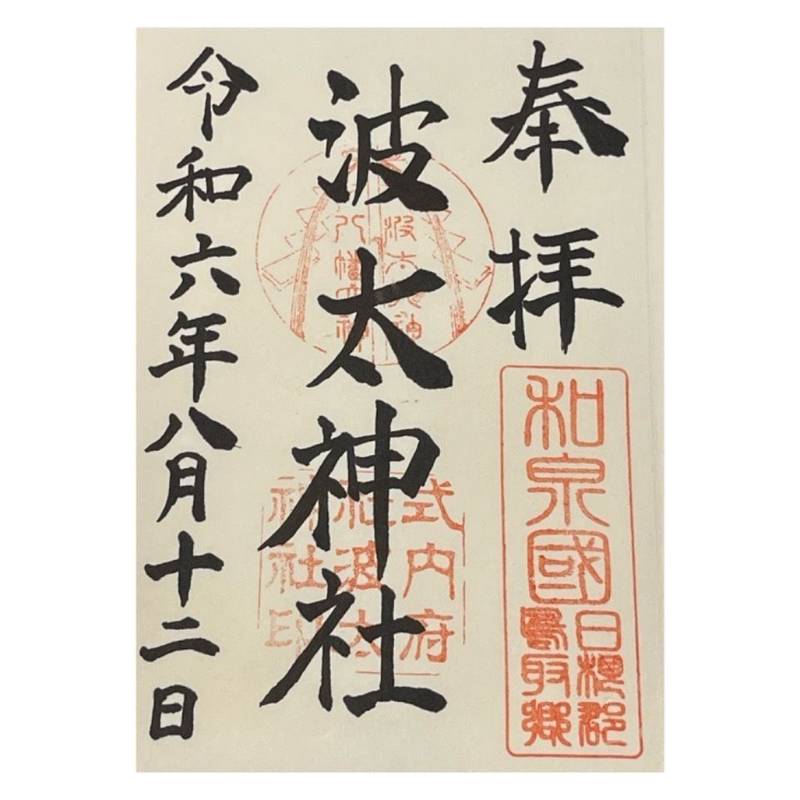 奉拝
和泉國
日根郡
鳥取郷
波太神社
波太大神
八幡大神
式内府
社波太
神社印
令和六年八月十二日